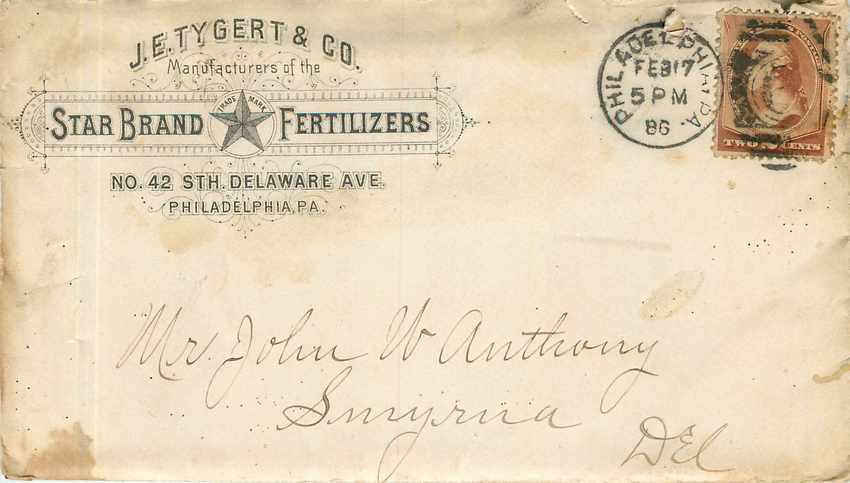 J. E. TYGERT & CO.
Manufacturers of the
STAR BRAND TRADE MARK FERTILIZERS
NO. 42 STH. DELAWARE AVE.
PHILADELPHIA, PA.
PHILADELPHIA, PA.
FEB 17
5 PM
86
TWO CENTS
Mr. John W Anthony
Smyrna
Del